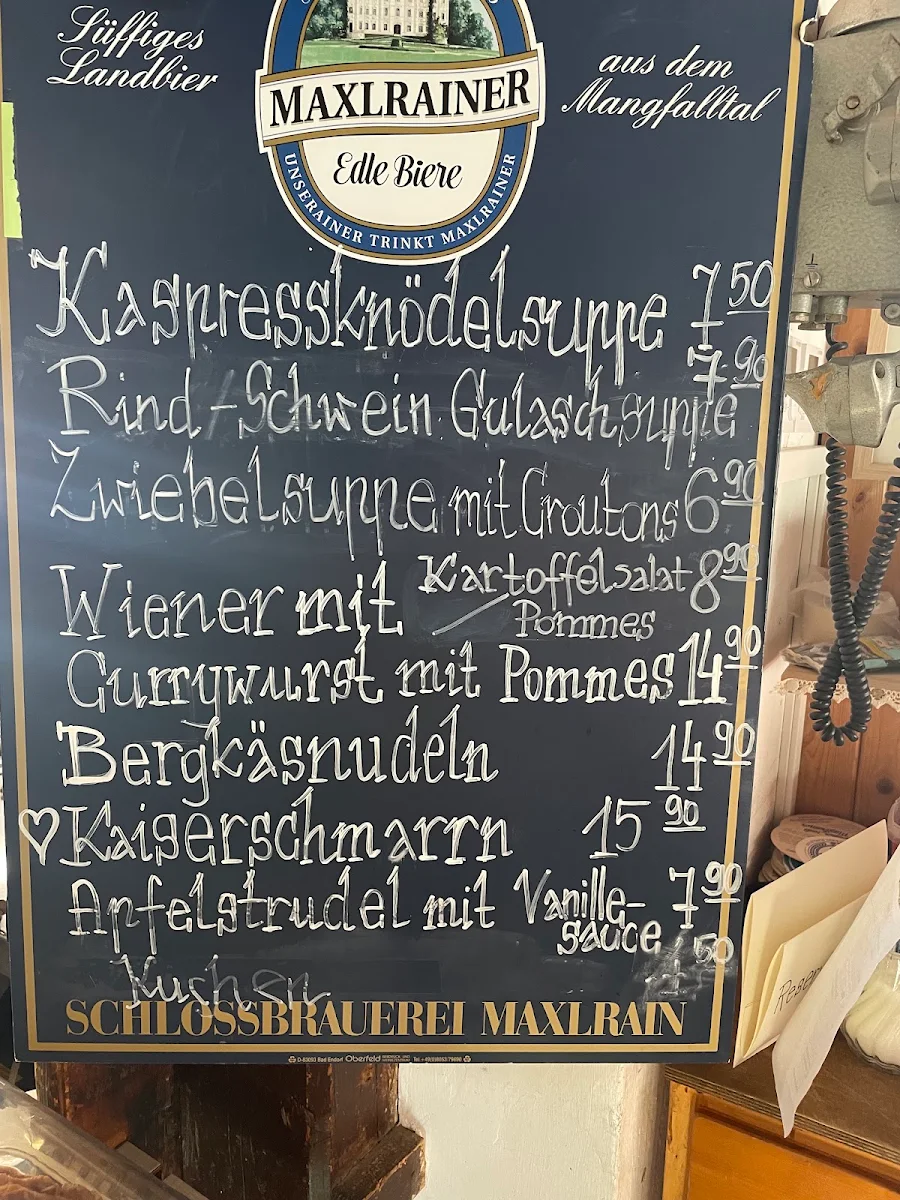 Süffiges
Landbier
aus dem
Mangfalltal
MAXLRAINER
Edle Biere
UNSERAINER TRINKT MAXLRAINER
Kaspressknödelsuppe 7 50
Rind-/Schwein Gulaschsuppe 7 90
Zwiebelsuppe mit Croutons 6 90
Wiener mit Kartoffelsalat 8 90
/ Pommes
Currywurst mit Pommes 14 90
Bergkäsnudeln 14 90
♡ Kaiserschmarrn 15 90
Apfelstrudel mit Vanille- 7 90
sauce
Kuchen 50
SCHLOSSBRAUEREI MAXLRAIN
D-83093 Bad Endorf Oberfeld
Reser